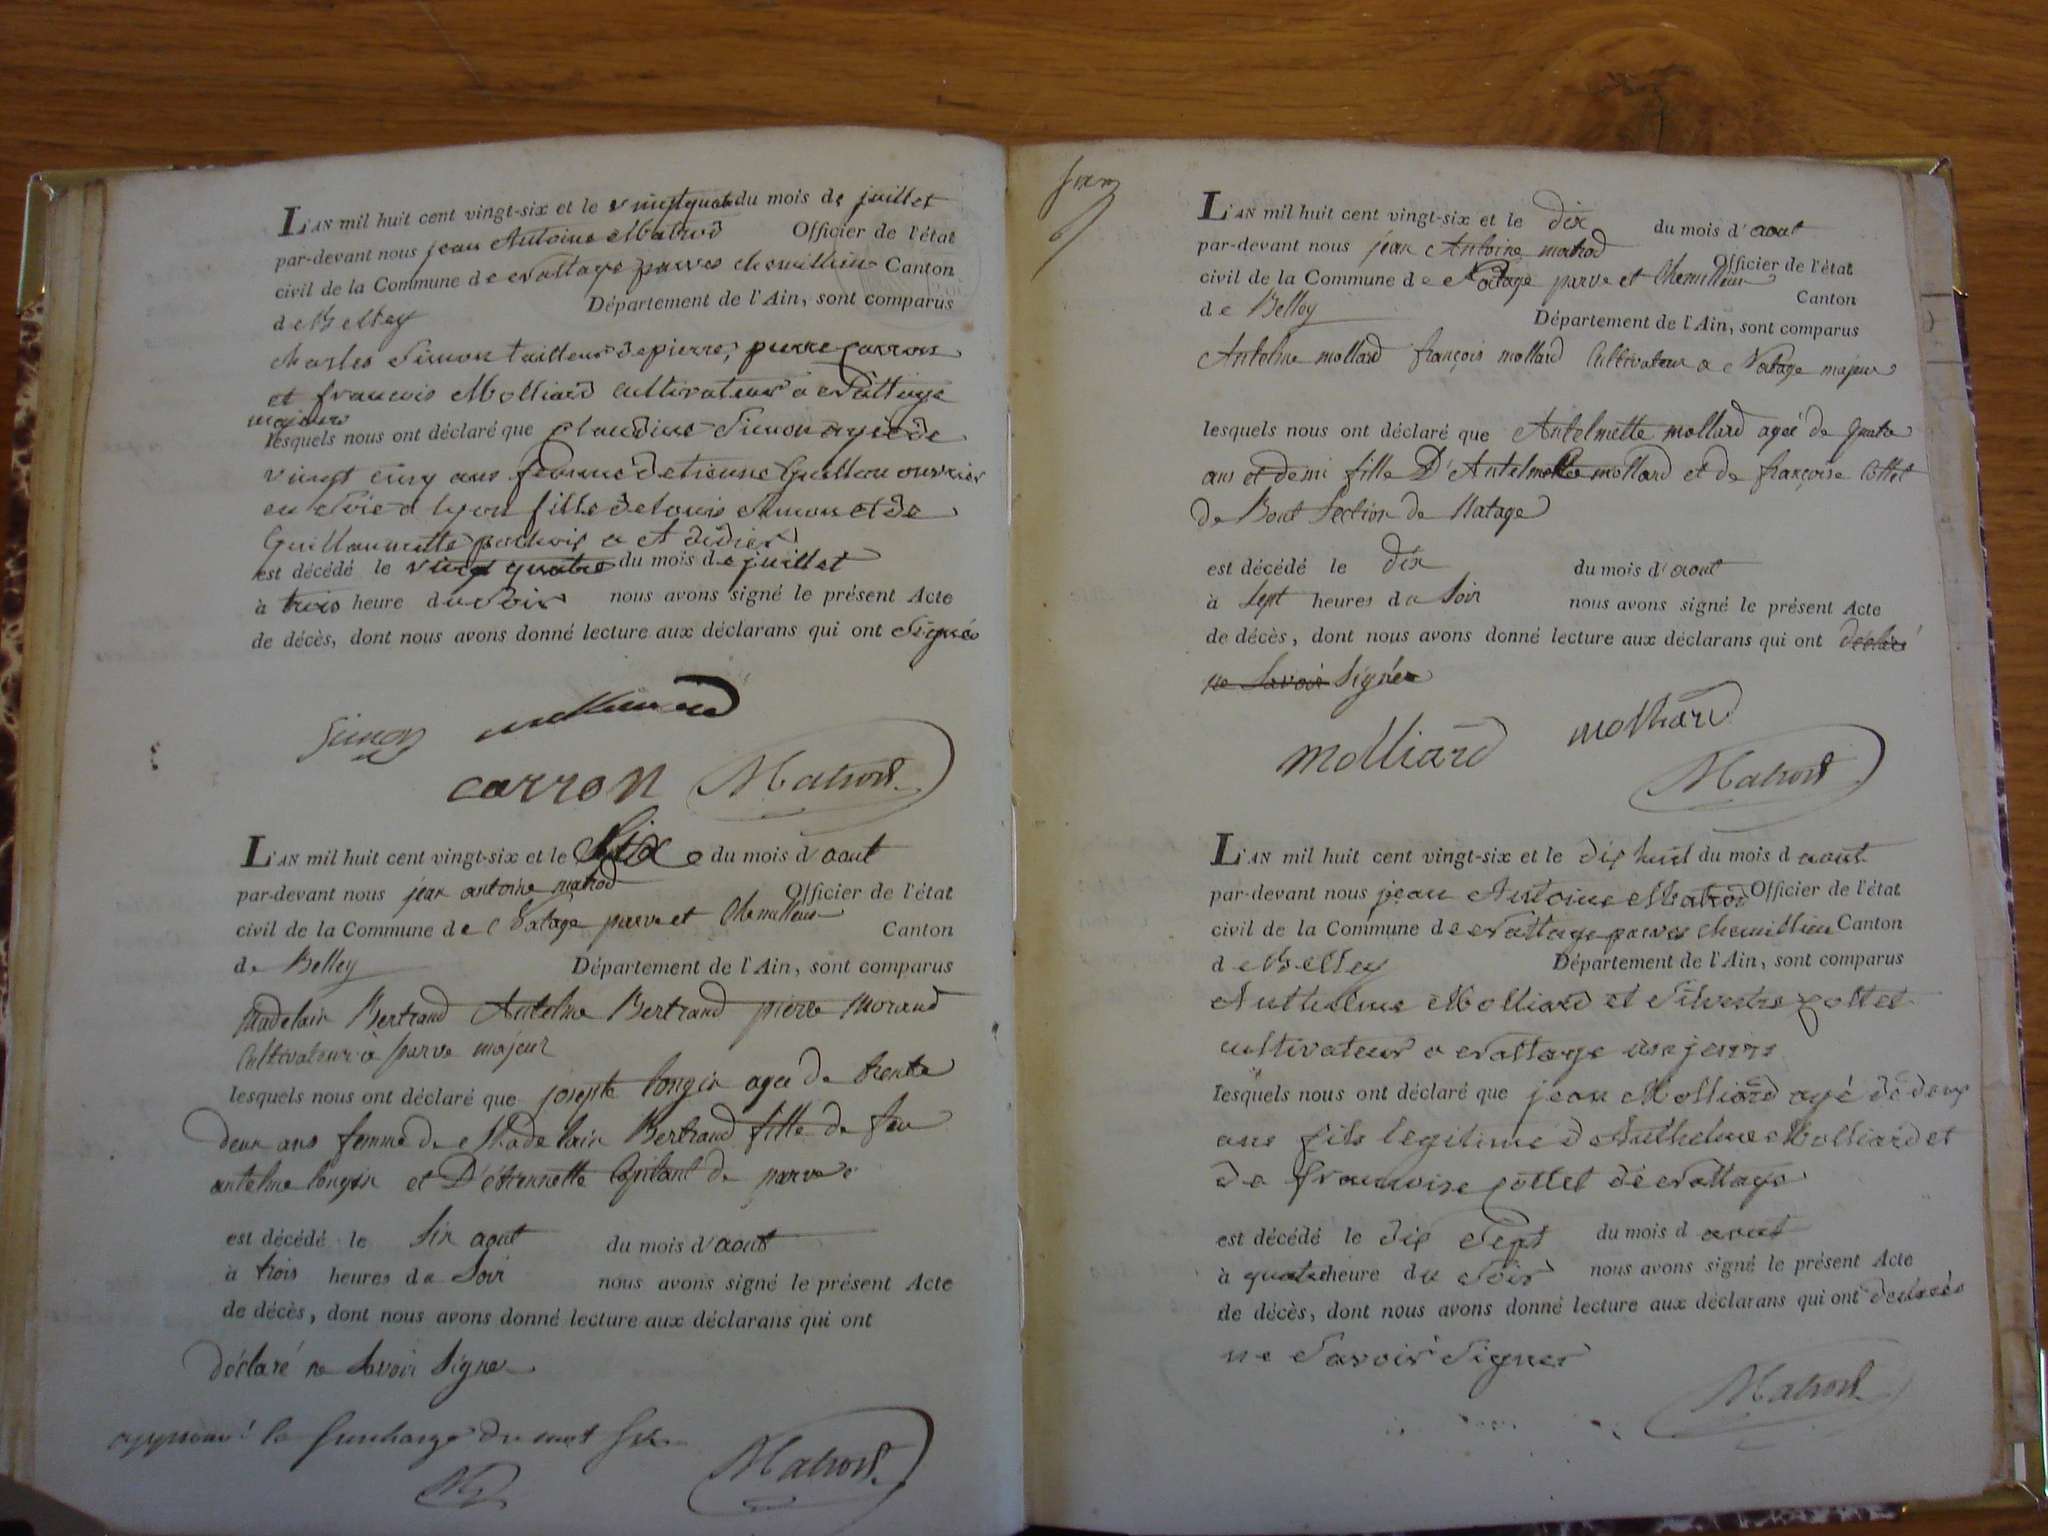 L'AN mil huit cent vingt-six et le vingt quatre du mois de juillet
par-devant nous jean Antoine Matrod Officier de l'état
civil de la Commune de Nattage parves chemillieu Canton
de Belley Département de l'Ain, sont comparus
charles Simon tailleur de pierre, pierre Carron
et francois Molliard cultivateur a Nattage
majeurs
lesquels nous ont déclaré que Claudine Simon agée de
vingt cinq ans femme d'etienne Guillou ouvrier
en soie a lyon fille de louis Simon et de
Guillaumette a St didier
est décédé le vingt quatre du mois de juillet
à trois heure du soir nous avons signé le présent Acte
de décès, dont nous avons donné lecture aux déclarans qui ont Signés
Simon molliard
carron Matrod
L'AN mil huit cent vingt-six et le Six du mois d'aout
par-devant nous jean antoine matrod Officier de l'état
civil de la Commune de Natage parve et Chemillieu Canton
de Belley Département de l'Ain, sont comparus
Madelain Bertrand Antelme Bertrand pierre Morand
Cultivateur à parve majeur
lesquels nous ont déclaré que josephte longin agée de trente
deux ans femme de Madelain Bertrand fille de feu
antelme longin et D'étiennette de parve
est décédé le Six aout du mois d'aout
à trois heures du Soir nous avons signé le présent Acte
de décès, dont nous avons donné lecture aux déclarans qui ont
déclaré ne Savoir Signer
approuvé la Surcharge du mot Six
M Matrod
L'AN mil huit cent vingt-six et le dix du mois d'aout
par-devant nous jean Antoine matrod Officier de l'état
civil de la Commune de Natage parve et Chemillieu
Canton
de Belley
Département de l'Ain, sont comparus
Antelme mollard françois mollard Cultivateur a Natage majeur
lesquels nous ont déclaré que Antelmette mollard agée de quatre
ans et demi fille D'Antelme mollard et de françoise Cottet
de Bout Section de Natage
est décédé le dix du mois d'aout
à Sept heures du Soir nous avons signé le présent Acte
de décès, dont nous avons donné lecture aux déclarans qui ont déclaré
ne Savoir Signée
Molliard molliard
Matrod
L'AN mil huit cent vingt-six et le dix huit du mois d aout
par-devant nous jean Antoine Matrod Officier de l'état
civil de la Commune de Nattage parves chemillieu Canton
de Belley Département de l'Ain, sont comparus
Anthelme Molliard et Silvestre Cottet
cultivateur a Nattage majeurs
lesquels nous ont déclaré que jean Molliard agé de deux
ans fils legitime d Anthelme Molliard et
de francoise Cottet de Nattage
est décédé le dix Sept du mois d aout
à quatre heure du Soir nous avons signé le présent Acte
de décès, dont nous avons donné lecture aux déclarans qui ont déclarés
ne Savoir Signer
Matrod